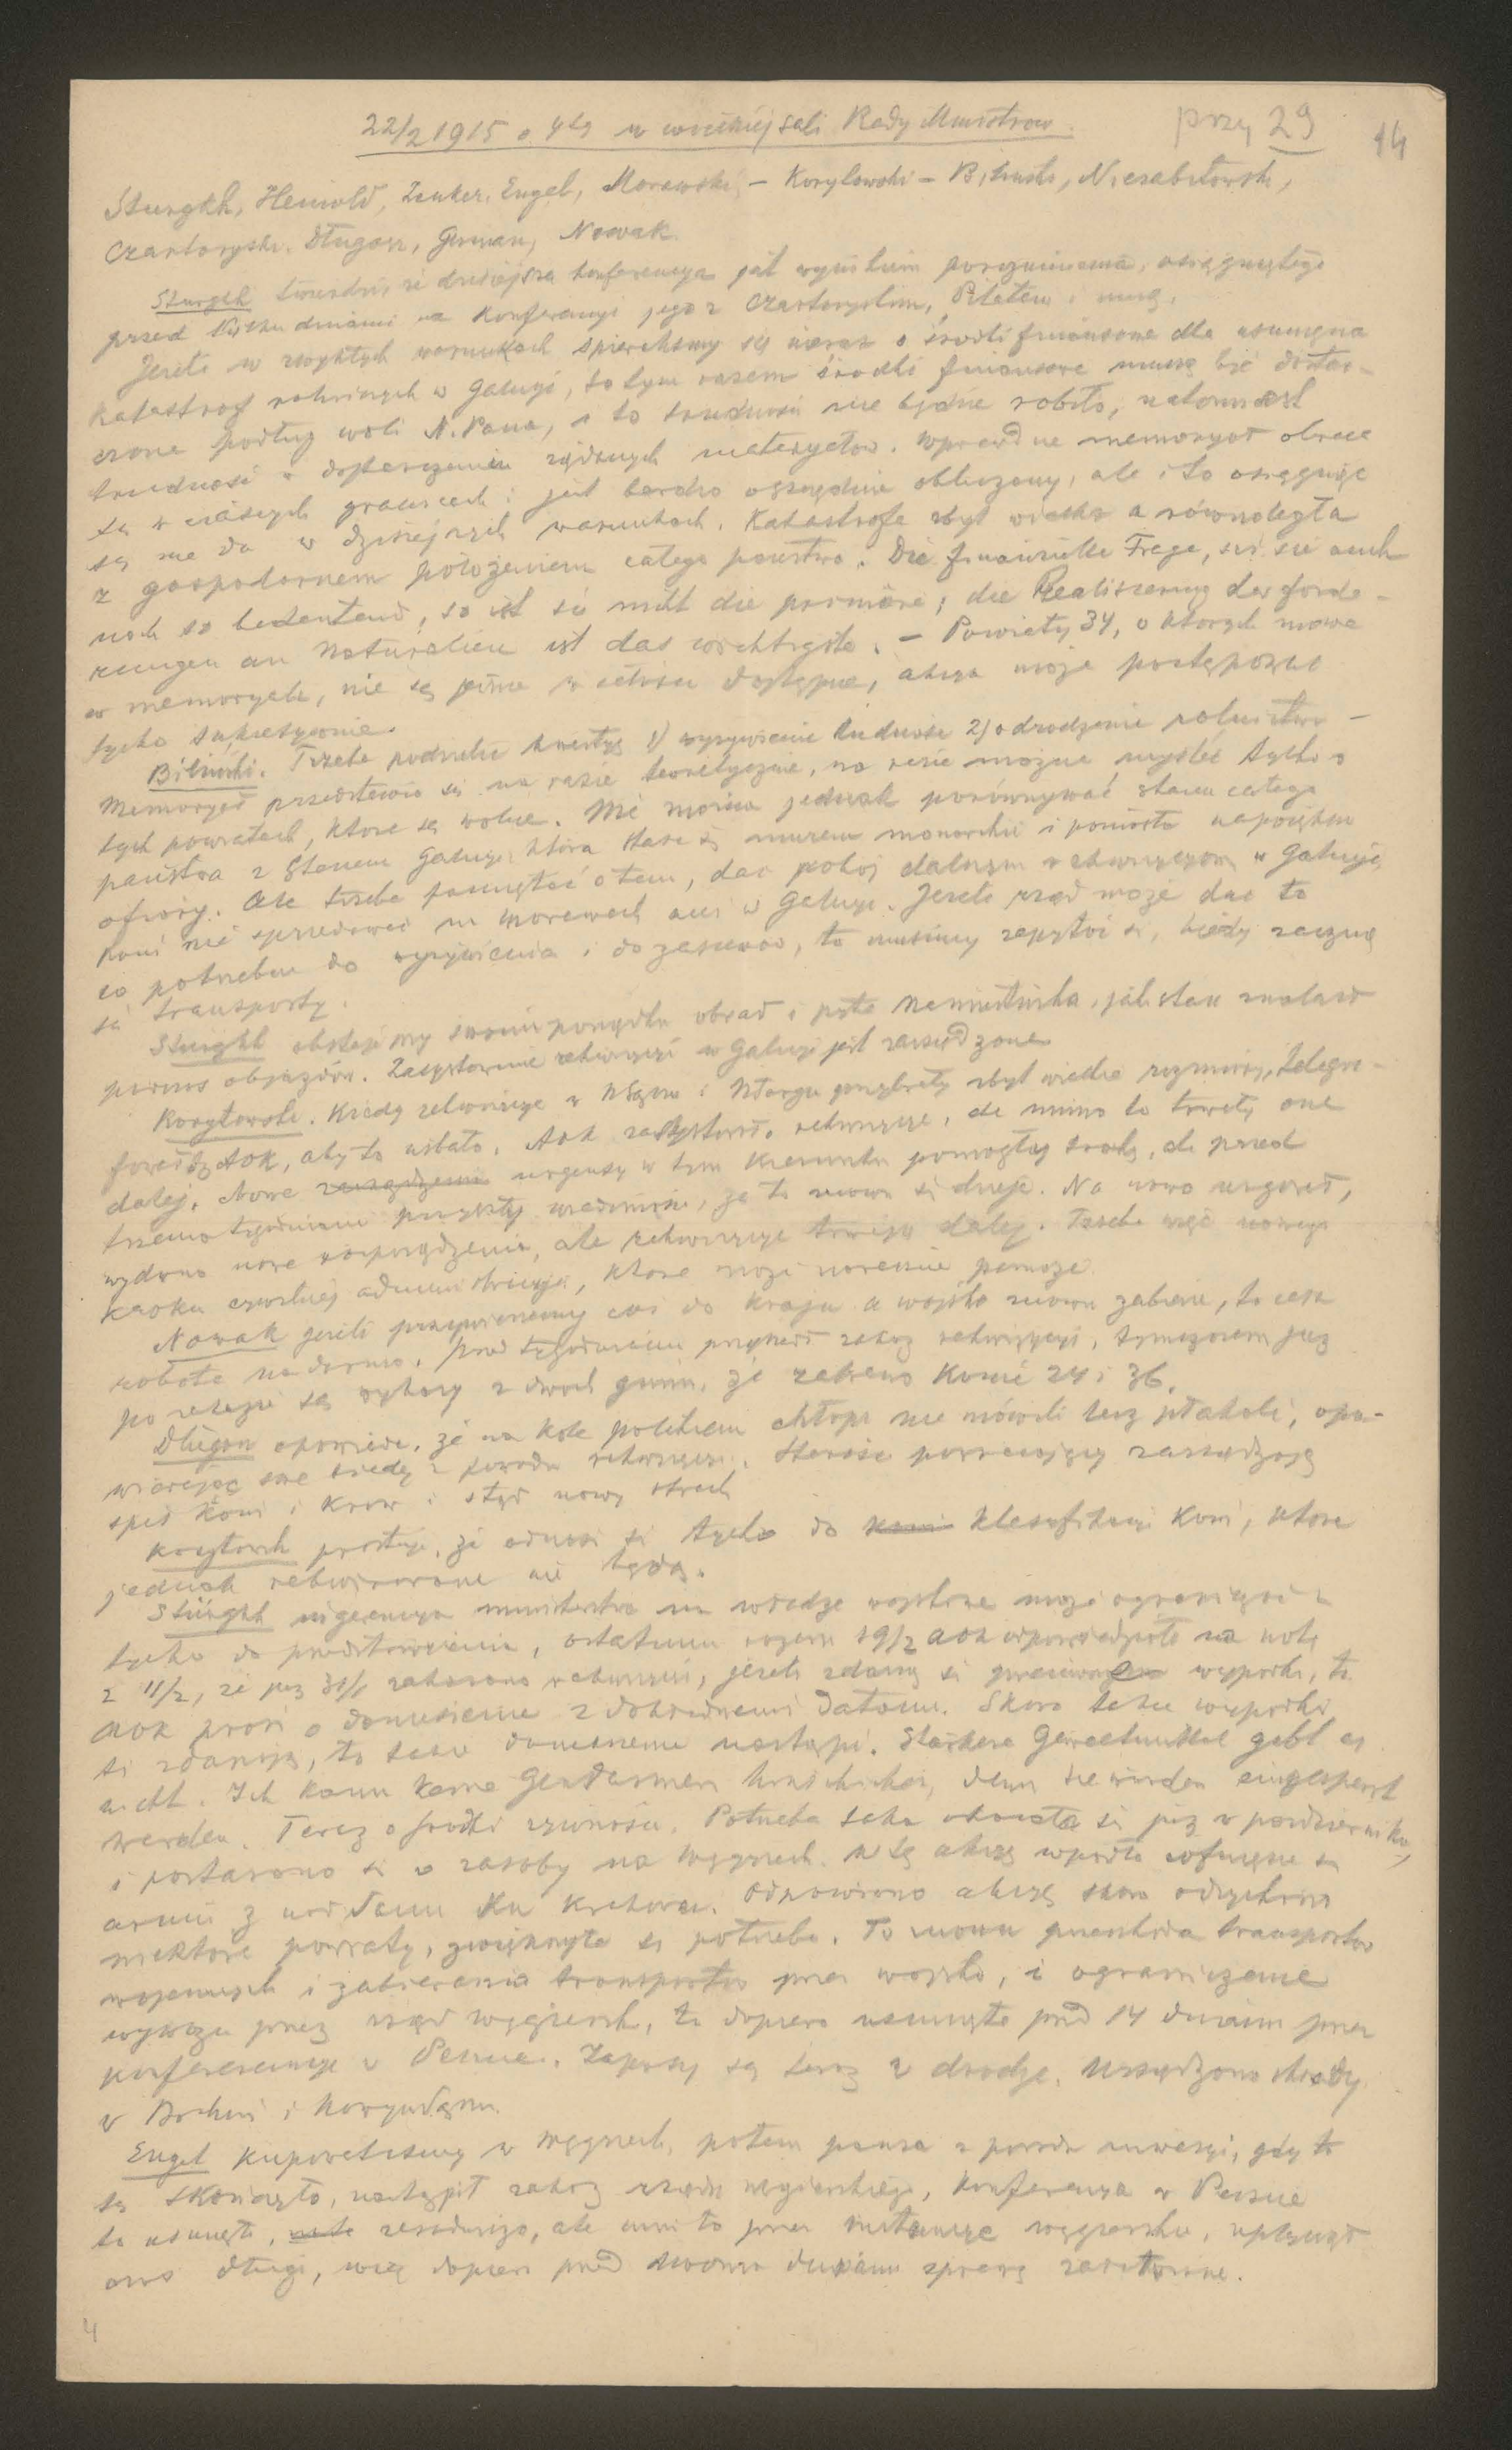 22/2 1915 o 4tej w wielkiej sali Rady Ministrów.
przy 29
14
Stürgkh, Heinold, Zenker, Engel, Morawski, – Korytowski – Biliński, Niezabitowski,
Czartoryski, Długosz, German, Nowak.
Sturgkh twierdzi, że dzisiejsza konferencya jest wynikiem porozumienia, osiągniętego
przed kilku dniami na konferencyi jego z Czartoryskim, Pilatem i mną.
Jeżeli w zwykłych warunkach spierchamy się nieraz o środki finansowe dla usunięcia
katastrof rolniczych w Galicyi, to tym razem środki finansowe muszą być dostar-
czone podług woli N. Pana, i to trudności nie będzie robiło, natomiast
trudności w dostarczeniu żądanych materyałów. Wprawdzie memoryał obraca
się w ciasnych granicach i jest bardzo oszczędnie obliczony, ale i to osiągnąć
się nie da w dzisiejszych warunkach. Katastrofa zbyt wielka a równoległa
z gospodarnem położeniem całego państwa. Die finanzielle Frage, sei sie auch
noch so bedeutend, so ist sie nicht die primäre; die Realisierung der Forde-
rungen an Naturalien ist das wichtigste. – Powiaty 34, o których mowa
w memoryale, nie są jeszcze w całości dostępne, akcya może postępować
tylko sukcesywnie.
Biliński. Trzeba podzielić kwestyę 1) wyżywienie ludności 2) odrodzenie rolnictwa –
Memoryał przedstawia się na razie teoretycznie, na razie można myśleć tylko o
tych powiatach, które są wolne. Nie można jednak porównywać stanu całego
państwa z stanem Galicyi, która stała się murem monarchii i poniosła największe
ofiary. Ale trzeba pamiętać o tem, dać pokój dalszym rekwizycyom w Galicyi,
koni nie sprzedawać na Morawach ani w Galicyi. Jeżeli rząd może dać to
co potrzebne do wyżywienia i do zasiewów, to musimy zapytać się, kiedy zaczną
się transporty.
Sturgkh obstaje przy swoim porządku obrad i pyta Namiestnika, jaki stan znalazł
podczas objazdów. Zasystowanie rekwizycyi w Galicyi jest zarządzone.
Korytowski. Kiedy rekwizycye w NSączu i NTargu przybrały zbyt wielkie rozmiary, telegra-
fował do AOK, aby to ustało. AOK zasystowało rekwizycye, ale mimo to trwały one
dalej. Nowe urgensy w tym kierunku pomogły trochę, ale przed
trzema tygodniami przyszły wiadomości, że to znowu się dzieje. Na nowo urgował,
wydano nowe rozporządzenia, ale rekwizycye trwają dalej. Trzeba więc nowego
kroku czwartej administracyi, które może nareszcie pomoże.
Nowak jeżeli przyprowadzimy coś do kraju a wojsko znowu zabierze, to cała
robota na darmo. Przed tygodniem przyszedł zakaz rekwizycyi, tymczasem już
po zakazie są wykazy z dwóch gmin, że zabrano konie 24 i 36.
Długosz opowiada, że na Kole polskiem chłopi nie mówili lecz płakali, opo-
wiadając swe biedy z powodu rekwizycyi. Starości powracający zarządzają
spis koni i krów i stąd nowy strach
Korytowski prostuje, że odnosi się tylko do klasyfikacyi koni, które
jednak rekwirowane nie będą.
Stürgkh ingerencya ministerstwa na władze wojskowe może ograniczać się
tylko do przedstawienia, ostatnim razem 19/2 AOK odpowiedziało na notę
z 11/2, że już 31/1 zakazano rekwizycyi, jeżeli zdarzą się przeciwne wypadki, to
AOK prosi o doniesienie z dokładnemi datami. Skoro takie wypadki
się zdarzają, to takie doniesienie nastąpi. Stärkere Gewaltmittel gibt es
nicht. Ich kann keine Gendarmen hinschicken, denn sie würden eingesperrt
werden. Teraz o środki żywności. Potrzeba taka okazała się już w październiku,
i postarano się o zasoby na Węgrzech. W tę akcyę wpadło cofnięcie się
armii z nad Sanu ku Krakowu. Odnowiono akcyę skoro odzyskano
niektóre powiaty, zwiększyła się potrzeba. To znowu przeszkoda transportów
wojennych i zabierania transportów przez wojsko, i ograniczenie
wywozu przez rząd węgierski, to dopiero usunięte przed 14 dniami przez
konferencyę w Peszcie. Zapasy są teraz w drodze. Urządzono składy
w Bochni i Nowym Sączu.
Engel kupowaliśmy w Węgrzech, potem pauza z powodu inwazyi, gdy to
się skończyło, nastąpił zakaz rządu węgierskiego, konferencya w Peszcie
to usunęła, zasadniczo, ale nim to przez instancye węgierskie, upłynął
czas długi, więc dopiero przed dwoma dniami sprawę załatwiono.
4